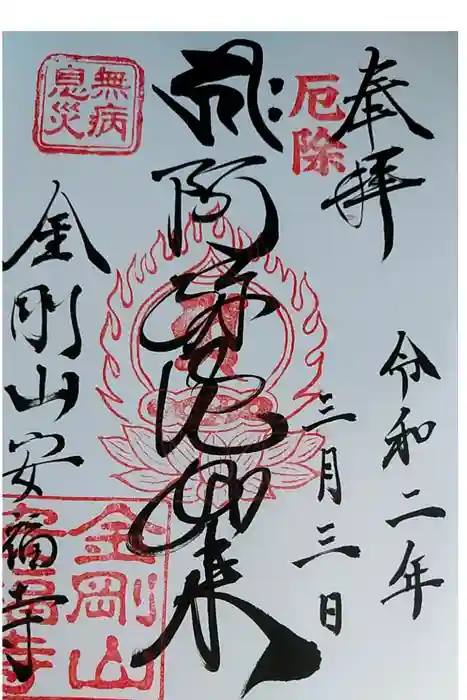 奉拝
厄除
令和二年
三月三日
阿閦如来
無病
息災
金剛山安福寺
金剛山
安福寺